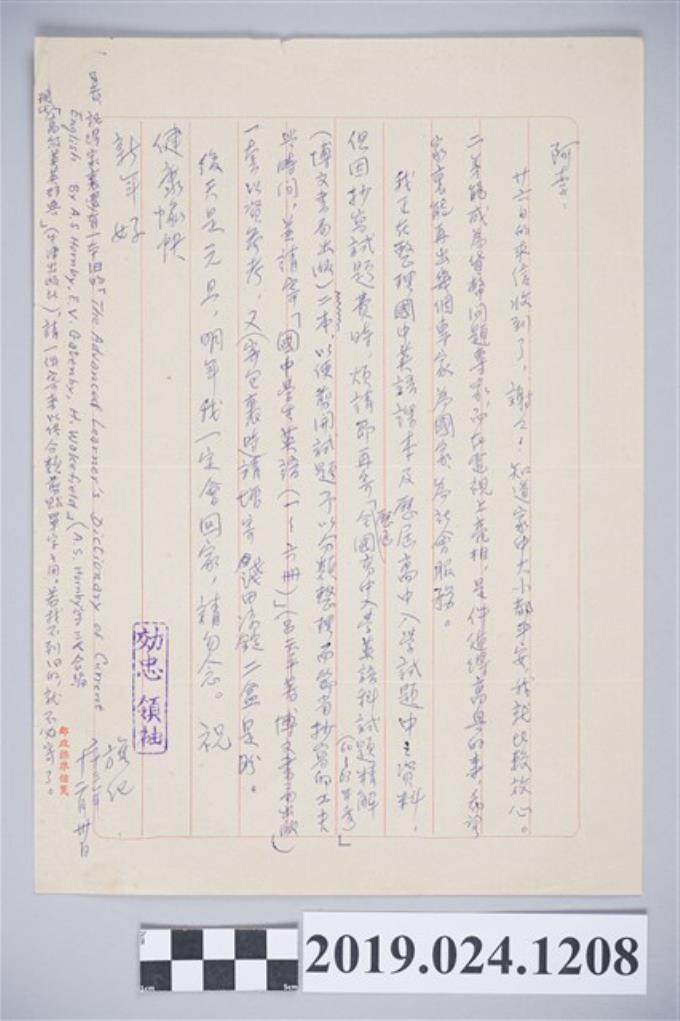 阿李：
廿六日的來信收到了，謝々！知道家中大小都平安，我就比較放心。
二弟能成為貨幣問題專家，而在電視上亮相，是件值得高興的事，希望
家裏能再出幾個專家，為國家、為社會服務。
我正在整理國中英語課本及歷屆高中入學試題中之資料，
但因抄寫試題費時，煩請即再寄「全國歷屆高中入學英語科試題精解」
(博文書局出版)二本，以便剪開試題予以分類整理而節省抄寫的工夫
與時間，並請寄「國中學生英語(一～六冊)」(博文書局出版)
一套以資參考，又(寄包裹時)請增寄 二盒是盼。
後天是元旦，明年我一定會回家，請勿念。祝
健康愉快
新年好
効忠領袖
旗化
十二月卅日
家裏還有一本舊的「The Advanced Learner's Dictionary of Current
English By A.S. Hornby, E.V. Gatenby, H. Wakefield」(A.S. Hornby等三人合編
，請一併寄來以供分類剪貼單字之用。若找不到舊的，就不必寄了。
郵政標準信箋
2019.024.1208
1cm
5cm